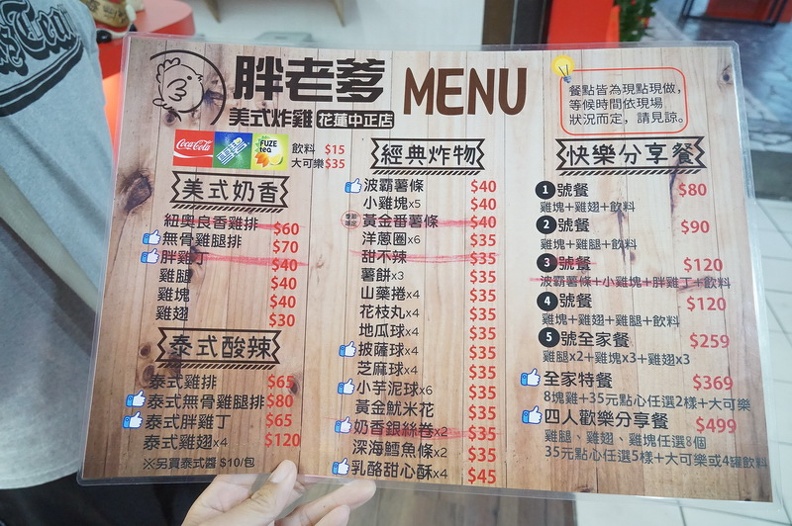 胖老爹 MENU
美式炸雞 花蓮中正店
餐點皆為現點現做,
等候時間依現場
狀況而定,請見諒。
Coca-Cola
雪碧
FUZE
tea
飲料 $15
大可樂 $35
美式奶香
紐奧良香雞排 $60
無骨雞腿排 $70
胖雞丁 $40
雞腿 $40
雞塊 $40
雞翅 $30
泰式酸辣
泰式雞排 $65
泰式無骨雞腿排 $80
泰式胖雞丁 $65
泰式雞翅x4 $120
※另買泰式醬 $10/包
經典炸物
波霸薯條 $40
小雞塊x5 $40
黃金番薯條 $40
洋蔥圈x6 $35
甜不辣 $35
薯餅x3 $35
山藥捲x4 $35
花枝丸x4 $35
地瓜球x4 $35
披薩球x4 $35
芝麻球x4 $35
小芋泥球x6 $35
黃金魷米花 $35
奶香銀絲卷x2 $35
深海鱈魚條x2 $35
乳酪甜心酥x4 $45
快樂分享餐
1 號餐 $80
雞塊+雞翅+飲料
2 號餐 $90
雞塊+雞腿+飲料
3 號餐 $120
波霸薯條+小雞塊+胖雞丁+飲料
4 號餐 $120
雞塊+雞翅+雞腿+飲料
5 號全家餐 $259
雞腿x2+雞塊x3+雞翅x3
全家特餐 $369
8塊雞+35元點心任選2樣+大可樂
四人歡樂分享餐 $499
雞腿、雞翅、雞塊任選8個
35元點心任選5樣+大可樂或4罐飲料